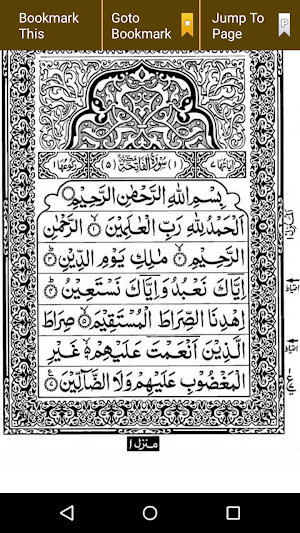 Bookmark This
Goto Bookmark
Jump To Page
(١) سُوْرَةُ الْفَاتِحَةِ (٥)
بِسْمِ اللهِ الرَّحْمٰنِ الرَّحِيْمِ
اَلْحَمْدُ لِلّٰهِ رَبِّ الْعٰلَمِيْنَ ۙ﴿١﴾ الرَّحْمٰنِ
الرَّحِيْمِ ۙ﴿٢﴾ مٰلِكِ يَوْمِ الدِّيْنِ ؕ﴿٣﴾
اِيَّاكَ نَعْبُدُ وَاِيَّاكَ نَسْتَعِيْنُ ؕ﴿٤﴾
اِهْدِنَا الصِّرَاطَ الْمُسْتَقِيْمَ ۙ﴿٥﴾ صِرَاطَ
الَّذِيْنَ اَنْعَمْتَ عَلَيْهِمْ ۙ﴿٦﴾ غَيْرِ
الْمَغْضُوْبِ عَلَيْهِمْ وَلَا الضَّآلِّيْنَ ﴿٧﴾
منزل ١